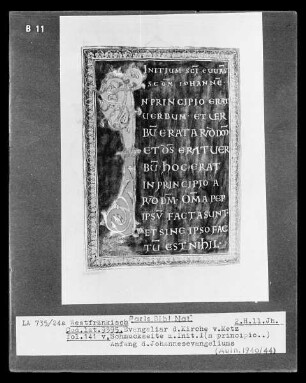 B 11
INITIUM SCI EVVAN
SCDM IOHANNE
N PRINCIPIO ERAT
UERBUM ET UER
BŪ ERAT APUD DM
ET DS ERAT UER
BŪ HOC ERAT
IN PRINCIPIO A
PUD DM. OMA PER
IPSV FACTA SUNT
ET SINE IPSO FAC
TU EST NIHIL
Paris Bibl Nat
LA 735/84a Westfränkisch 2.H.11.Jh.
Cod.lat.9395 Evangeliar d.Kirche v.Metz
fol.141 v. Schmuckseite m.Init.I(n principio..)
Anfang d.Johannesevangeliums
(Aufn.1940/44)